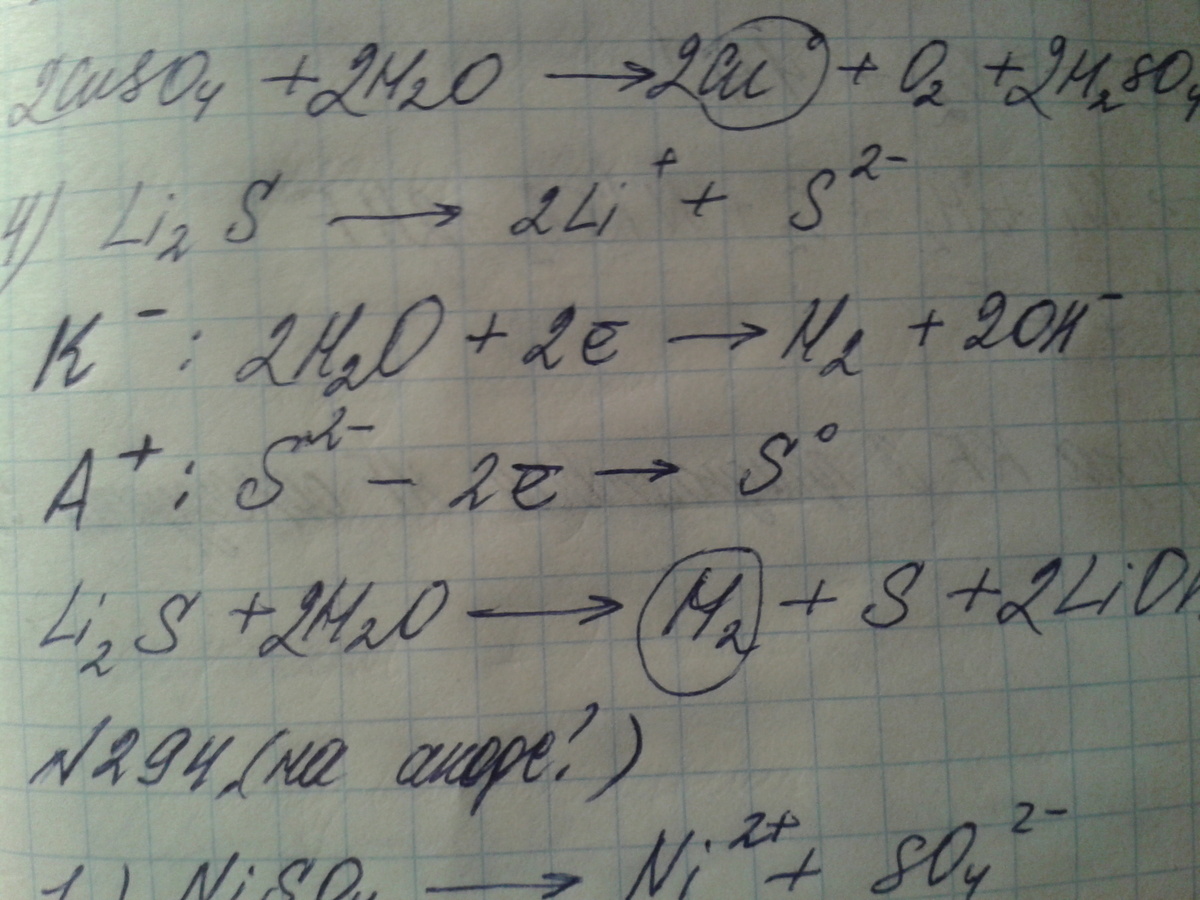 2CuSO₄ + 2H₂O → 2Cu⁰ + O₂ + 2H₂SO₄
4) Li₂S → 2Li⁺ + S²⁻
K⁻: 2H₂O + 2ē → H₂ + 2OH⁻
A⁺: S²⁻ - 2ē → S⁰
Li₂S + 2H₂O → H₂ + S + 2LiOH
N294 (на аноде?)
1) NiSO₄ → Ni²⁺ + SO₄²⁻